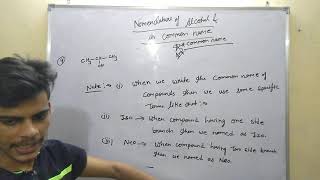 Nomenclature of Alcohol &
in Common name
common name
CH3-CH-CH3
OH
Note:- (i) When we write the common name of
compounds then we use some specific
Terms like that:-
(ii) Iso → When compound having one side
branch then we named as Iso.
(iii) Neo → When compound having Two side branch
then we named as Neo.